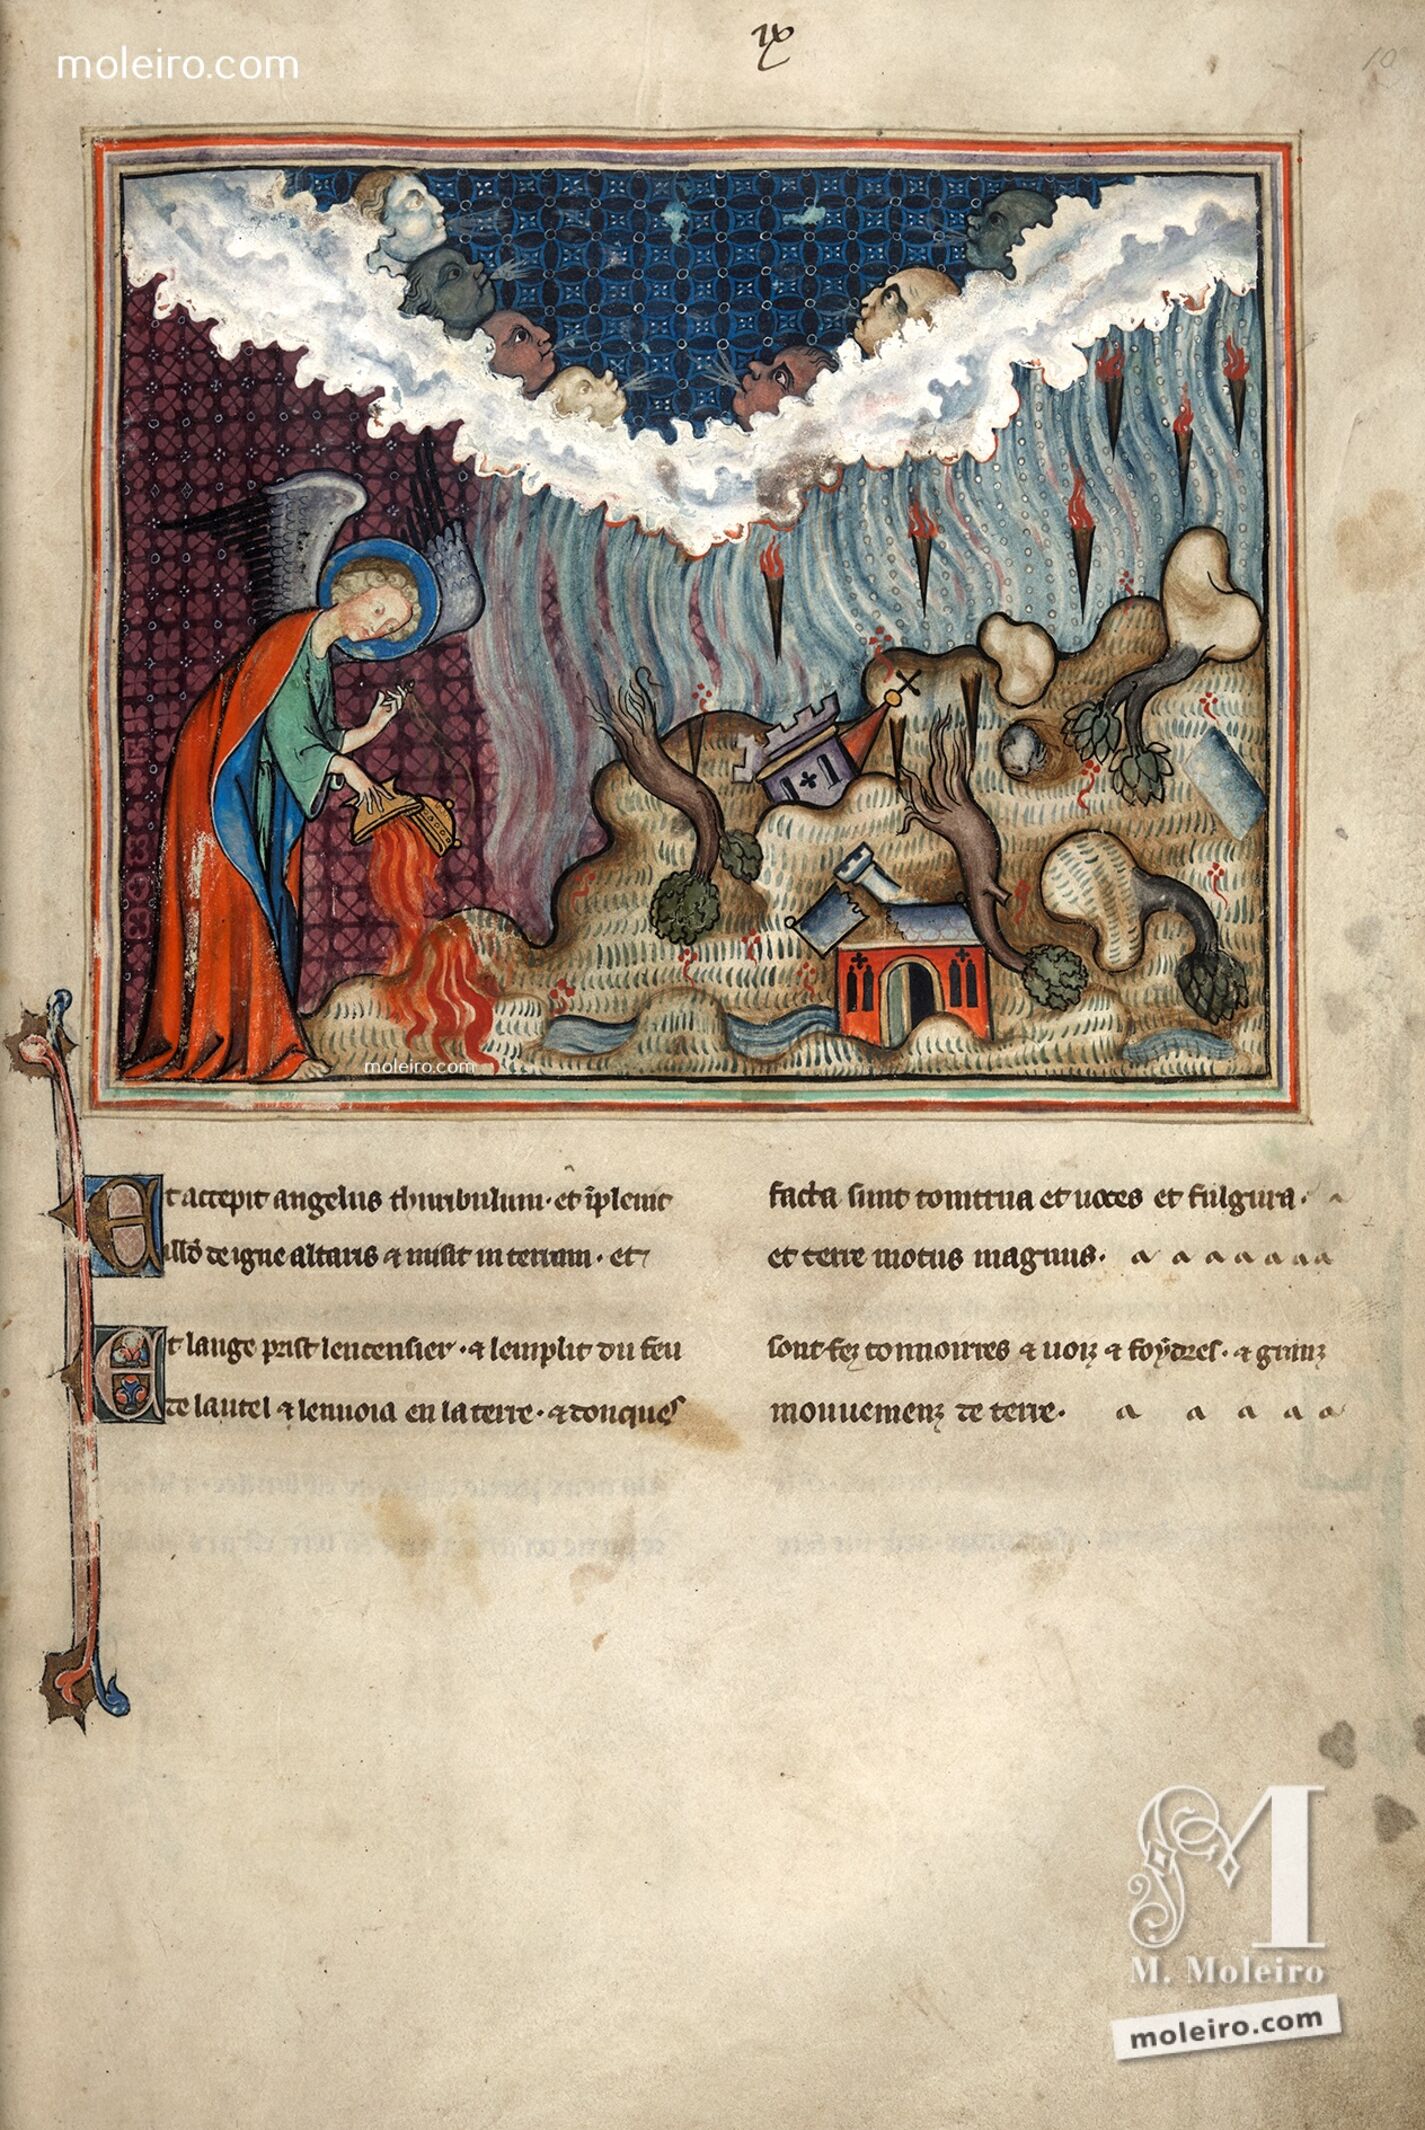 moleiro.com
ıx
10
moleiro.com
Et accepit angelus thuribulum · et īpleuit
illd̄ de igne altaris ⁊ misit in terram · et
facta sunt tonitrua et uoces et fulgura ·
et terre motus magnus ·
Et lange prist lencensier · ⁊ lemplit du feu
de lautel ⁊ lenuoia en la terre · ⁊ donques
sont fez tonnoirres ⁊ uoiz ⁊ foydres · ⁊ granz
mouuemenz de terre ·
M
M. Moleiro
moleiro.com